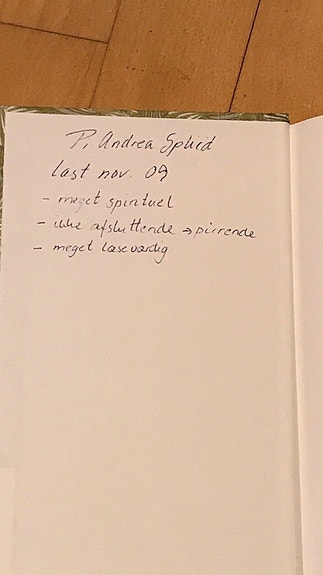 P. Andrea Spliid
læst nov. 09
- meget spirituel
- ikke afsluttende → pirrende
- meget læseværdig